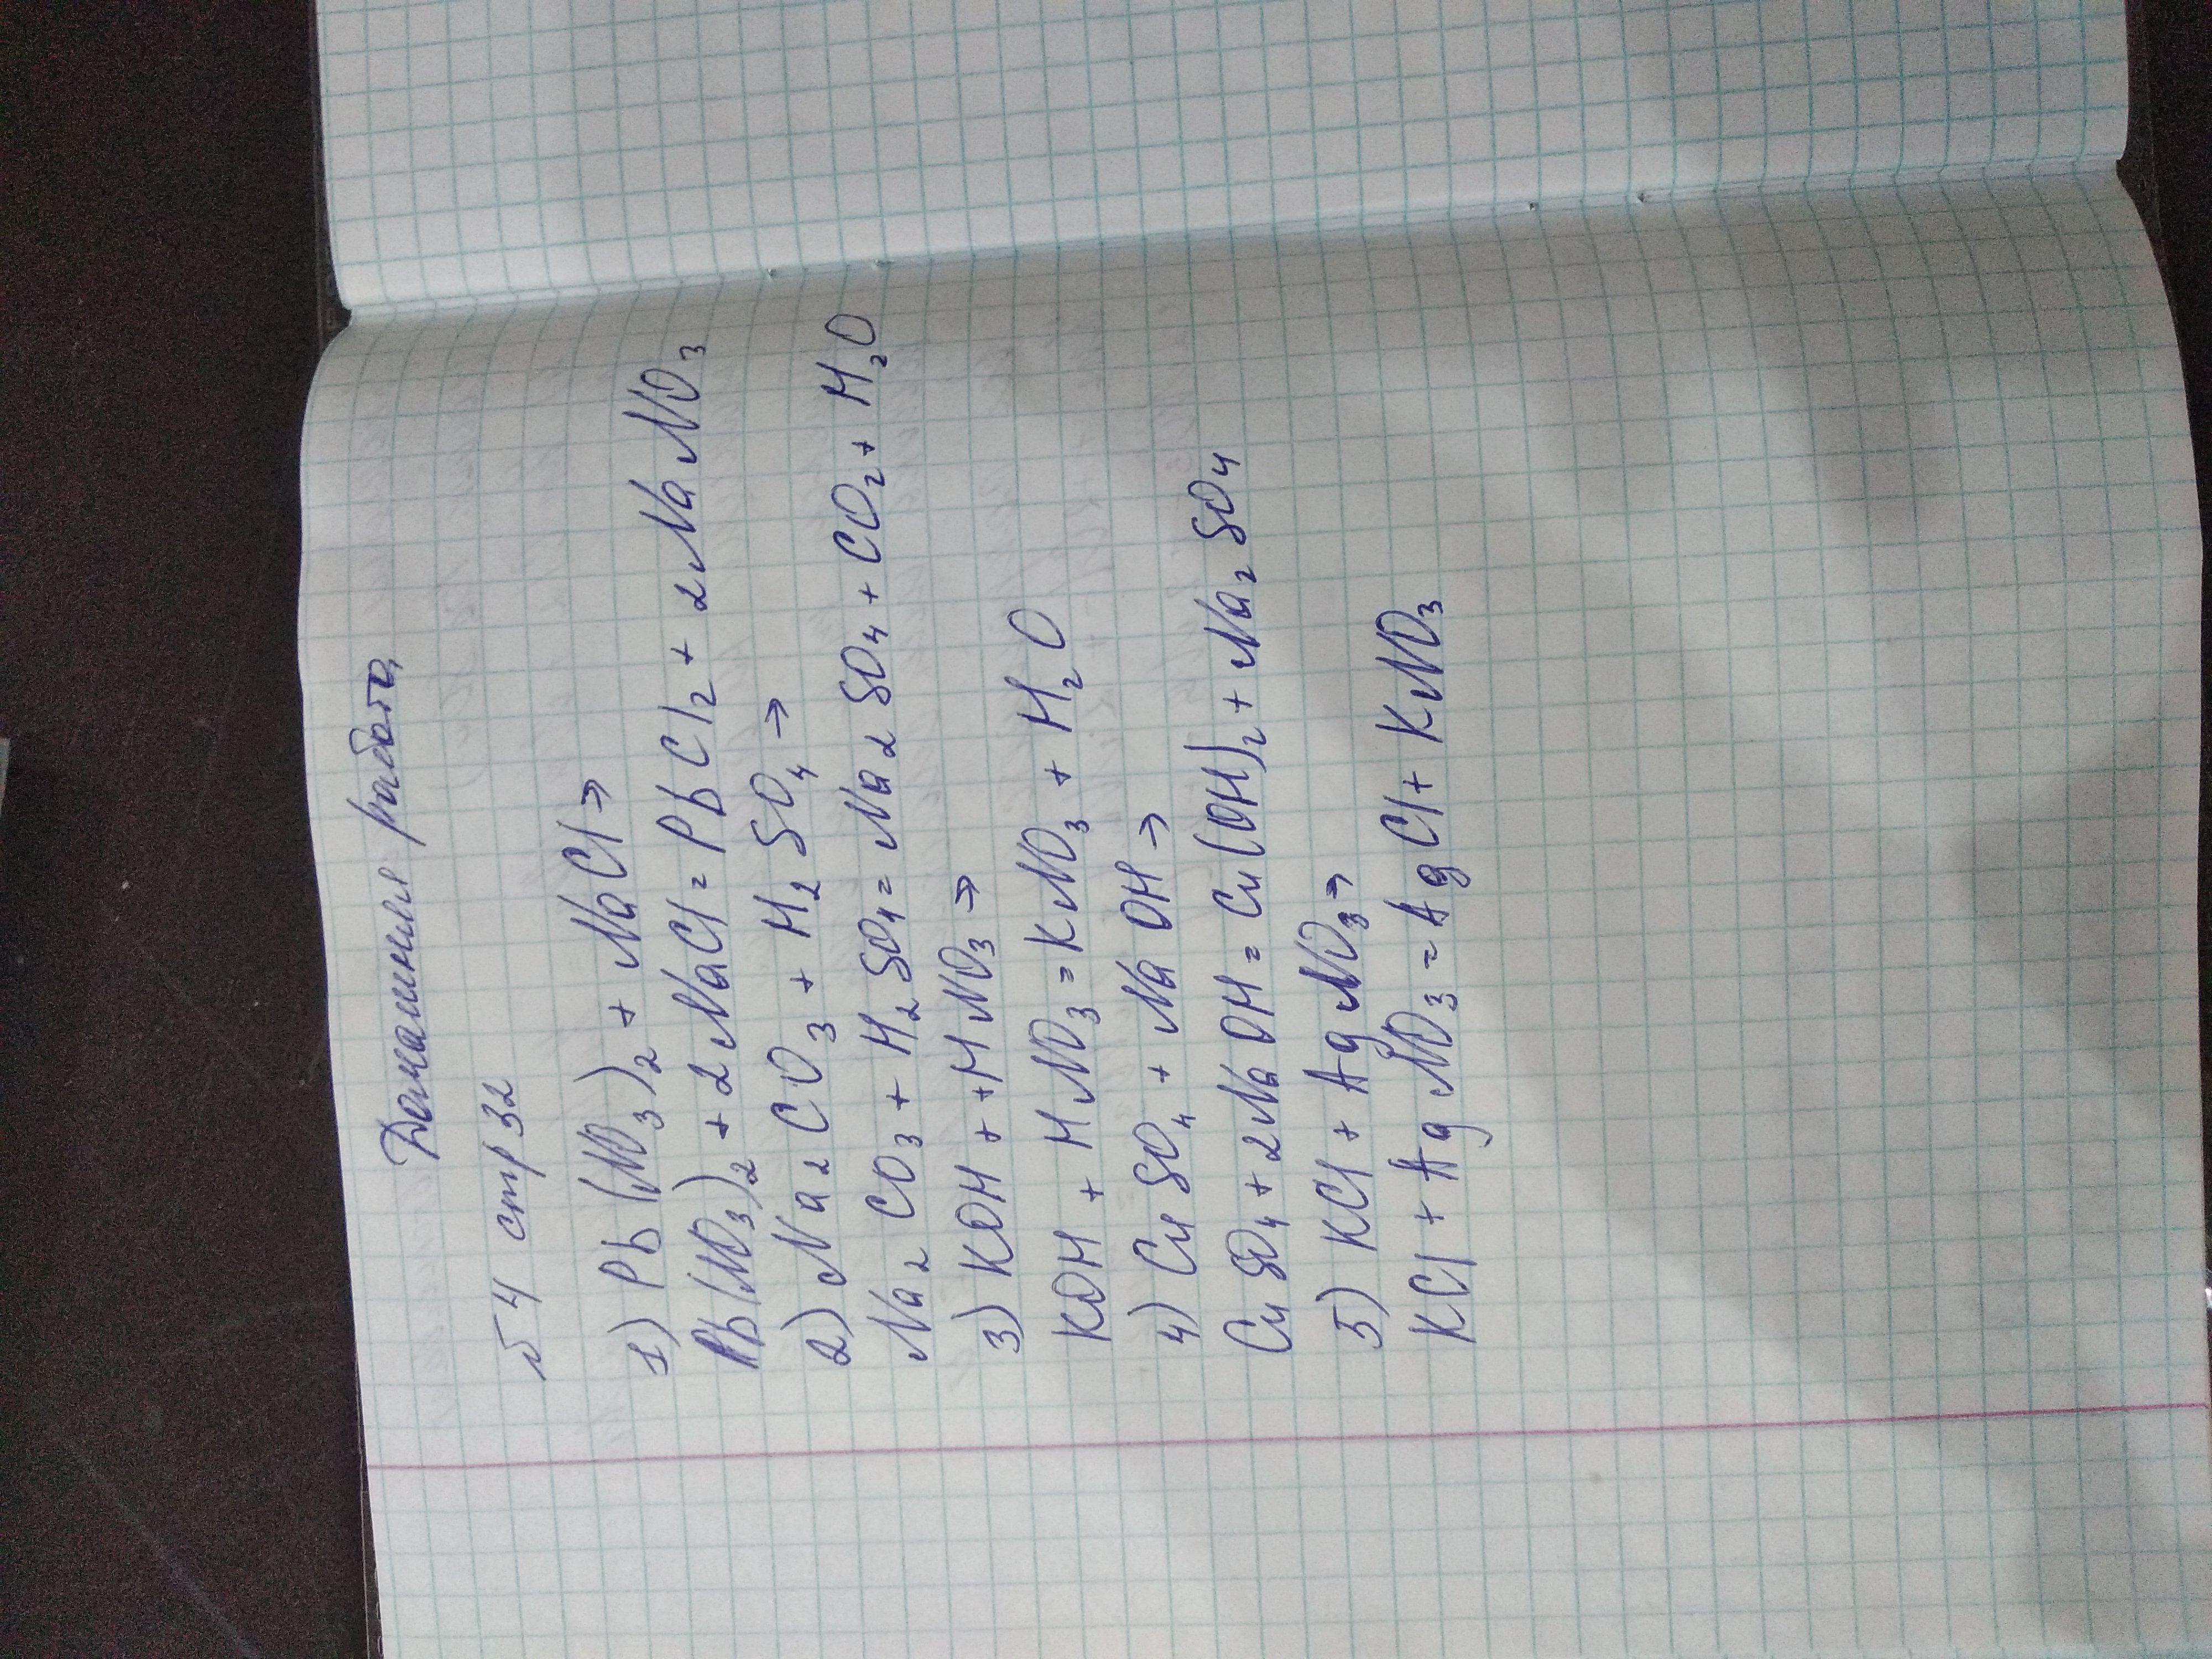 Домашняя работа
№ 4 стр 32
1) Pb(NO₃)₂ + NaCl →
Pb(NO₃)₂ + 2NaCl = PbCl₂ + 2NaNO₃
2) Na₂CO₃ + H₂SO₄ →
Na₂CO₃ + H₂SO₄ = Na₂SO₄ + CO₂ + H₂O
3) KOH + +HNO₃ →
KOH + HNO₃ = KNO₃ + H₂O
4) CuSO₄ + NaOH →
CuSO₄ + 2NaOH = Cu(OH)₂ + Na₂SO₄
5) KCl + AgNO₃ →
KCl + AgNO₃ = AgCl + KNO₃